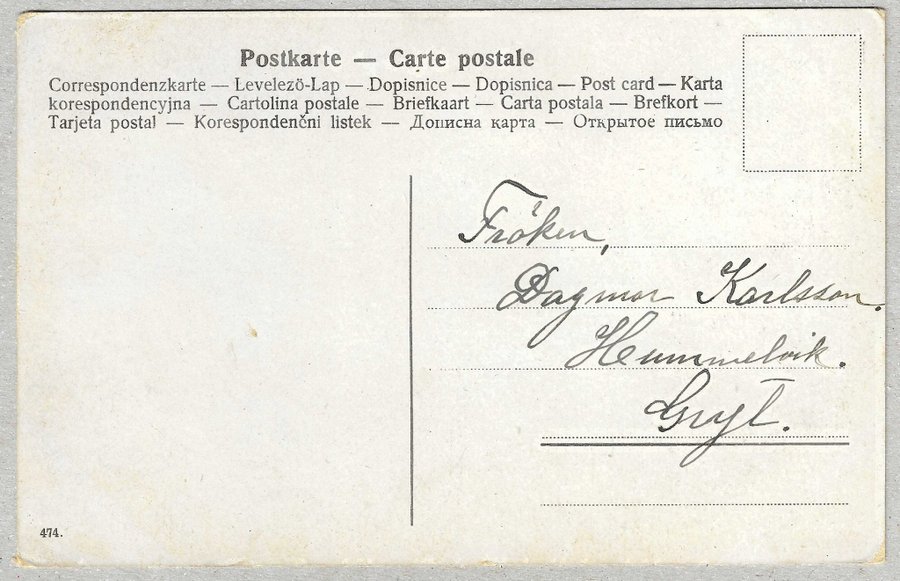 Postkarte — Carte postale
Correspondenzkarte — Levelező-Lap — Dopisnice — Dopisnica — Post card — Karta
korespondencyjna — Cartolina postale — Briefkaart — Carta postala — Brefkort —
Tarjeta postal — Korespondenčni listek — Дописна карта — Открытое письмо
Fröken,
Dagmar Karlsson.
Hummelvik.
Gryt.
474.